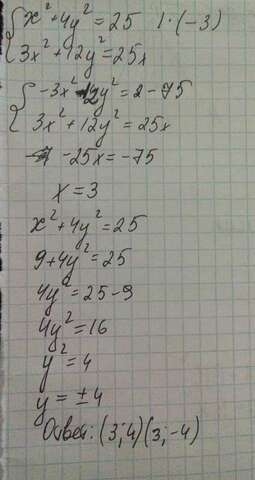 x² + 4y² = 25 | · (-3)
3x² + 12y² = 25x
-3x² - 12y² = -75
3x² + 12y² = 25x
-25x = -75
x = 3
x² + 4y² = 25
9 + 4y² = 25
4y² = 25 - 9
4y² = 16
y² = 4
y = ± 4
Ответ: (3; 4) (3; -4)